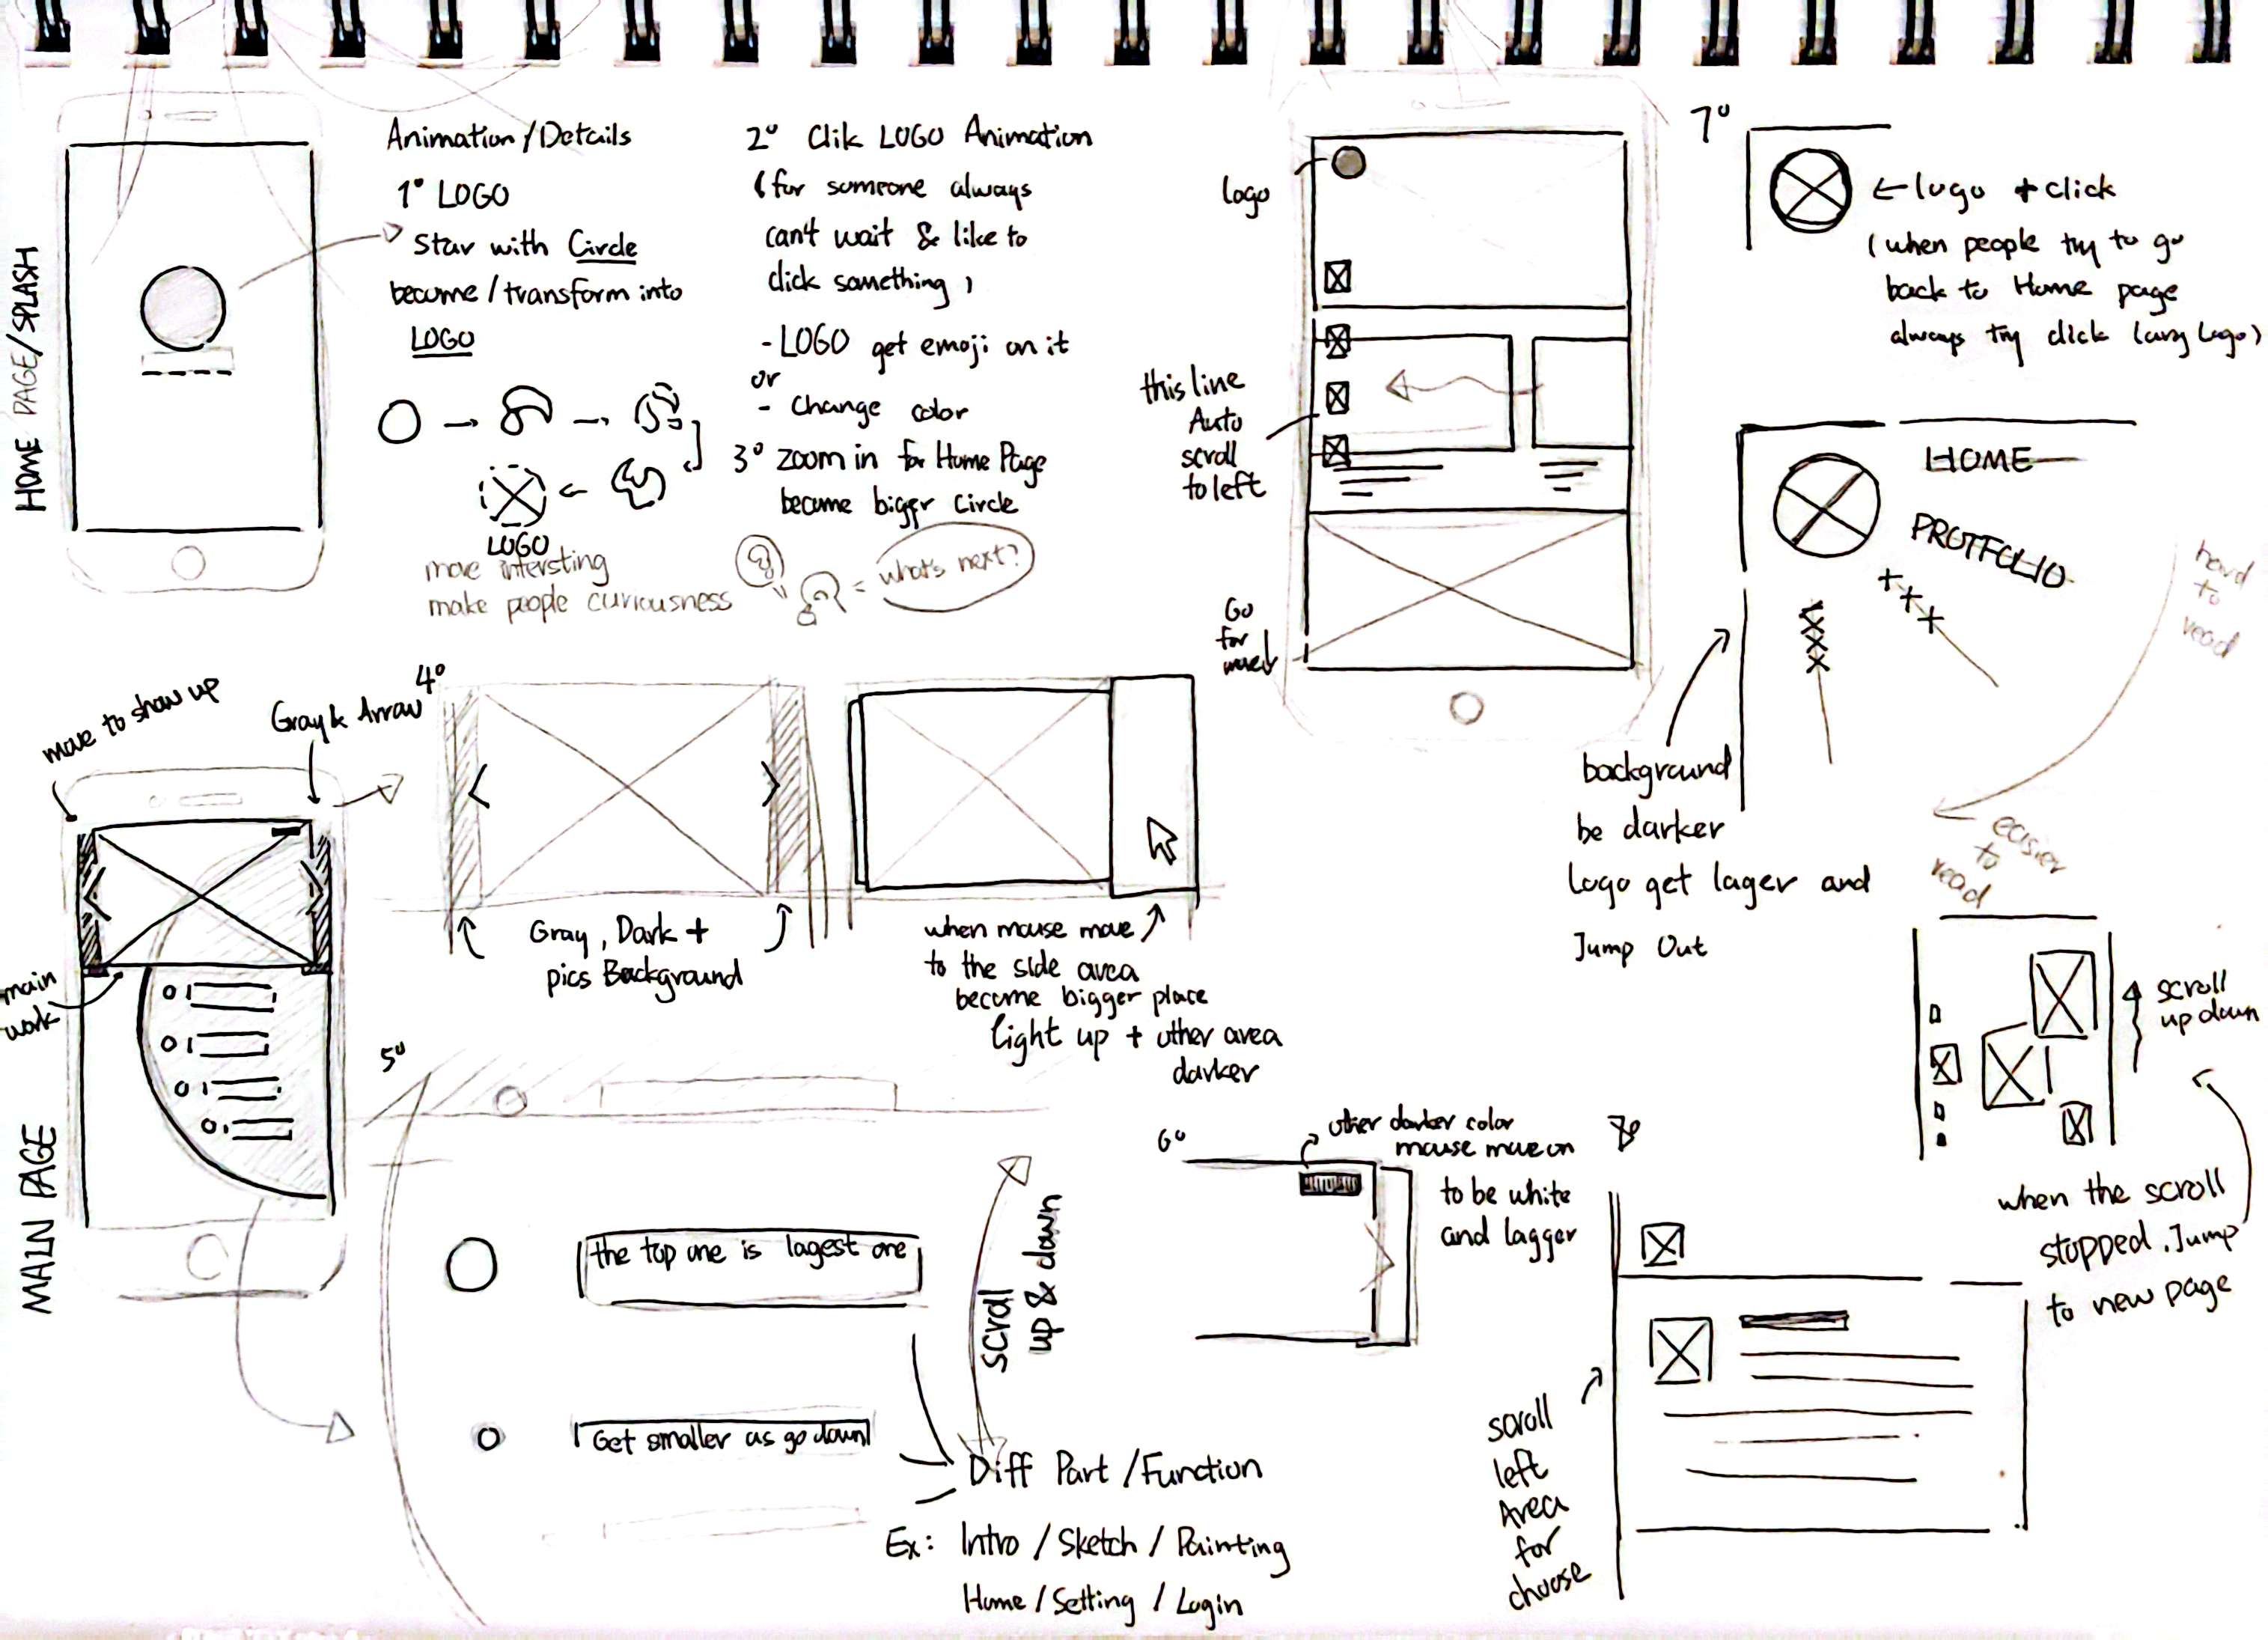 HOME PAGE/SPLASH
Animation/Details
1° LOGO
Star with Circle
become/transform into
LOGO
LOGO
more intersting
make people curiousness
2° Clik LOGO Animation
(for someone always
can't wait & like to
click something)
- LOGO get emoji on it
or
- Change color
3° zoom in for Home Page
become bigger Circle
= what's next?
logo
this line
Auto
scroll
to left
Go
for
more↓
7°
← logo + click
(when people try to go
back to Home page
always try click Logo)
HOME
PROTFOLIO
hard
to
read
easier
to
read
background
be darker
Logo get lager and
Jump Out
scroll
up down
when the scroll
stopped, Jump
to new page
MAIN PAGE
move to show up
Gray & Arrow
main
work
4°
Gray, Dark +
pics Background
when mouse move
to the side area
become bigger place
light up + other area
darker
5°
the top one is lagest one
Get smaller as go down
scroll
up & down
Diff Part/Function
Ex: Intro / Sketch / Painting
Home / Setting / Login
6°
other darker color
mouse move on
to be white
and lagger
8°
scroll
left
Area
for
choose